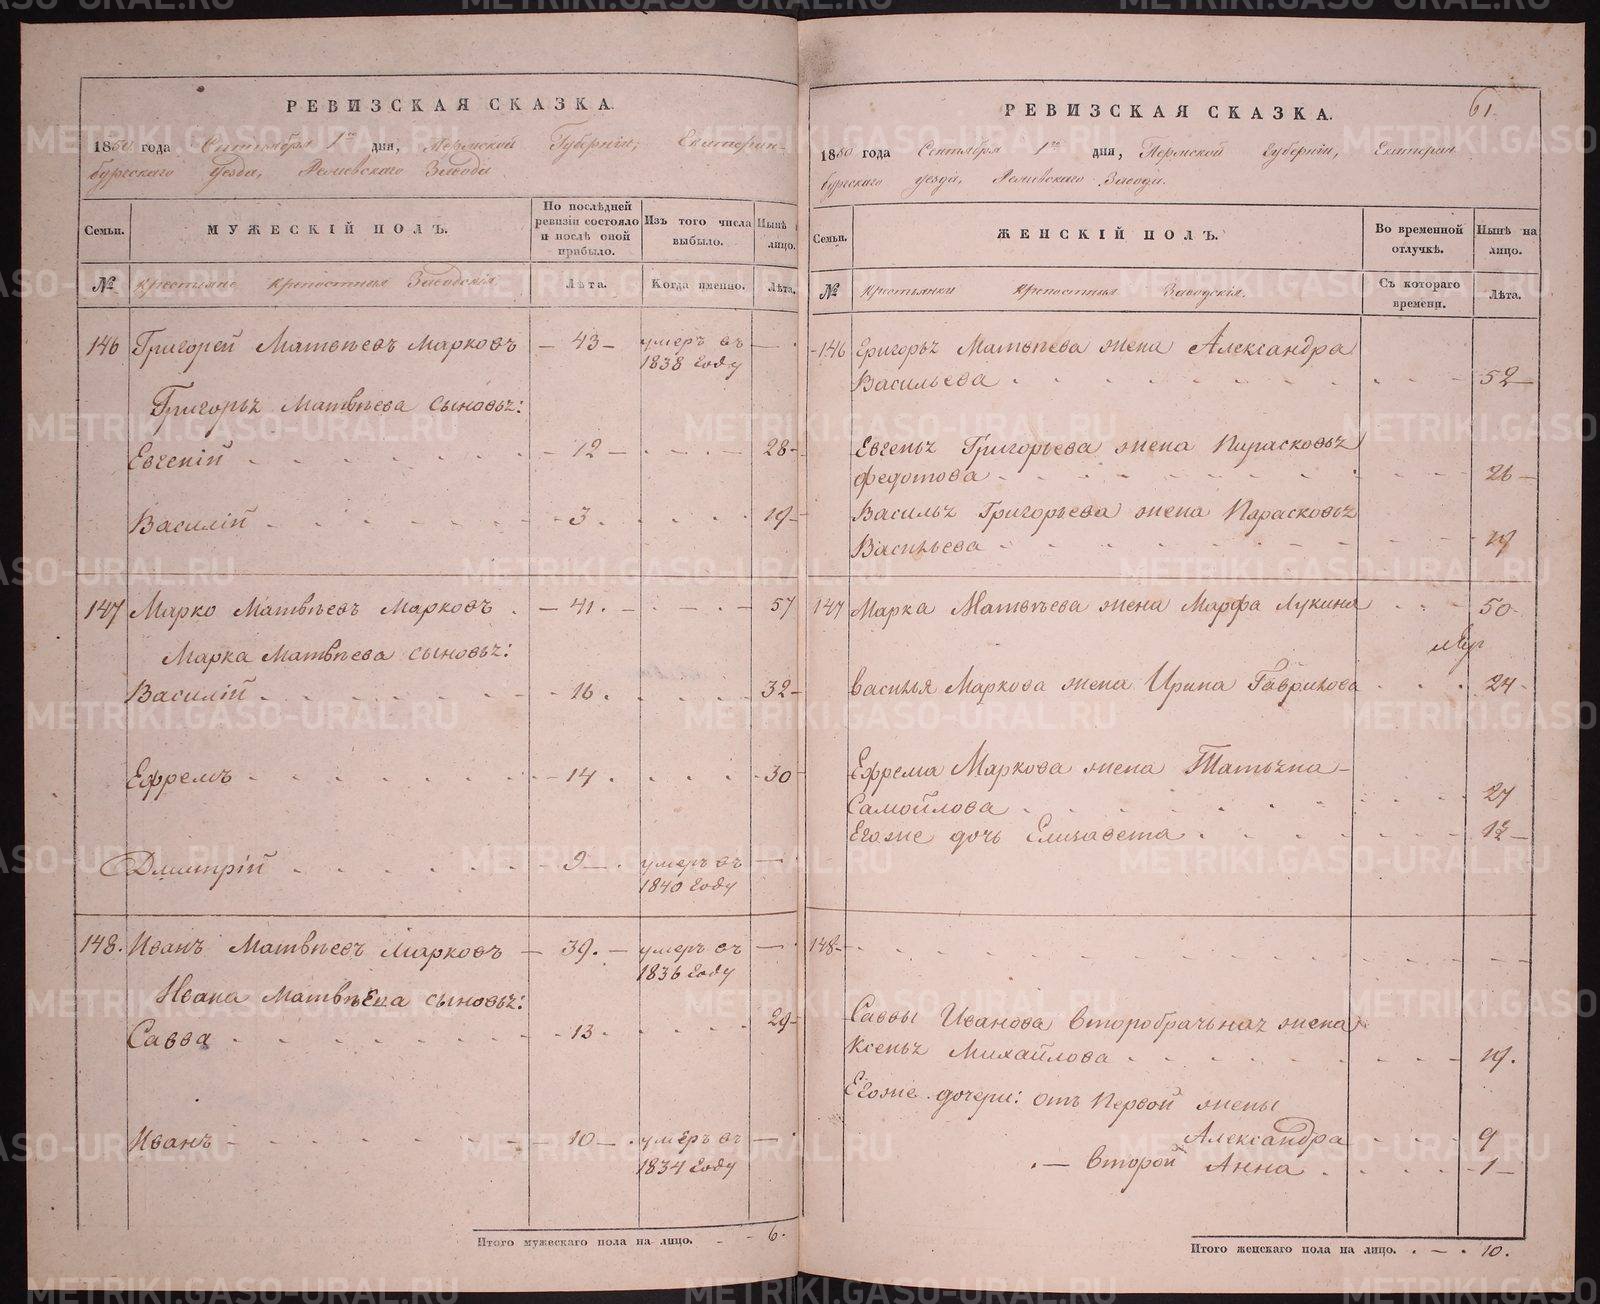 РЕВИЗСКАЯ СКАЗКА.
1850 года Сентября 1го дня, Пермской Губерніи, Екатерин-
бургскаго уезда, Завода
Семьи.
МУЖЕСКІЙ ПОЛЪ.
По послѣдней ревизіи состояло и послѣ оной прибыло.
Изъ того числа выбыло.
Нынѣ лицо.
№
Крестьяне крепостныя Заводскія
Лѣта.
Когда именно.
Лѣта.
146 Григорей Матвѣевъ Марковъ — 43 — умеръ въ —
1838 Году
Григорья Матвѣева сыновья:
Евгеній 12 28
Василій 3. 19
147 Марко Матвѣевъ Марковъ. — 41. — 57
Марка Матвѣева сыновья:
Василій 16. 32
Ефремъ 14. 30
Дмитрій 9 умеръ въ —
1840 Году
148. Иванъ Матвѣевъ Марковъ — 39. — умеръ въ —
1836 Году
Ивана Матвѣева сыновья:
Савва 13 29
Иванъ 10 умеръ въ —
1834 Году
Итого мужескаго пола на лицо. 6.
61.
РЕВИЗСКАЯ СКАЗКА.
1850 года Сентября 1го дня, Пермской Губерніи, Екатерин
бургскаго уезда, Завода.
Семьи.
ЖЕНСКІЙ ПОЛЪ.
Во временной отлучкѣ.
Нынѣ на лицо.
№
Крестьянки крепостныя Заводскія.
Съ котораго времени.
Лѣта.
146 Григорья Матвѣева жена Александра
Васильева 52
Евгенья Григорьева жена Парасковья
Федотова 26
Василья Григорьева жена Парасковья
Васильева 19
147 Марка Матвѣева жена Марфа Лукина 50
Василья Маркова жена Ирина Гаврилова 24
Ефрема Маркова жена Татьяна
Самойлова 27
Егоже дочь Елизавета
148
Саввы Иванова второбрачьная жена
Ксенья Михайлова 19.
Егоже дочери: отъ Первой жены
Александра 9
— второй Анна 1
Итого женскаго пола на лицо. 10.
METRIKI.GASO-URAL.RU